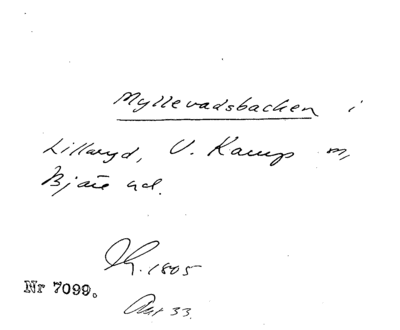 Myllevadsbacken i
Lillaryd, V. Karup
Bjäre hd.
1805
Nr 7099.
Akt 33.